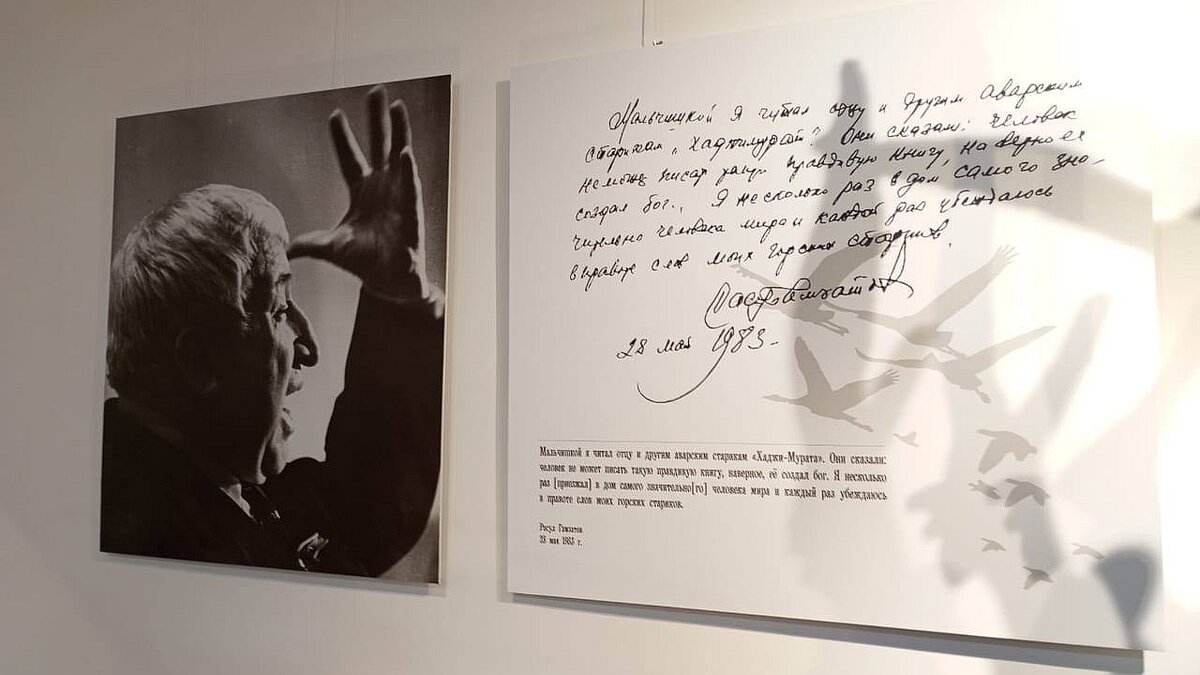 Мальчишкой я читал отцу и другим аварским
старикам „Хаджимурат". Они сказали: человек
не может писат такую правдивую книгу, наверно ее
создал бог., Я несколько раз в дом самого зна-
чительно человека мира и каждой раз убеждалось
в правоте слов моих горских стариков.
Расул Гамзатов
28 май 1983-
Мальчишкой я читал отцу и другим аварским старикам «Хаджи-Мурата». Они сказали:
человек не может писать такую правдивую книгу, наверное, её создал бог. Я несколько
раз [приезжал] в дом самого значительно[го] человека мира и каждый раз убеждаюсь
в правоте слов моих горских стариков.
Расул Гамзатов
28 мая 1983 г.